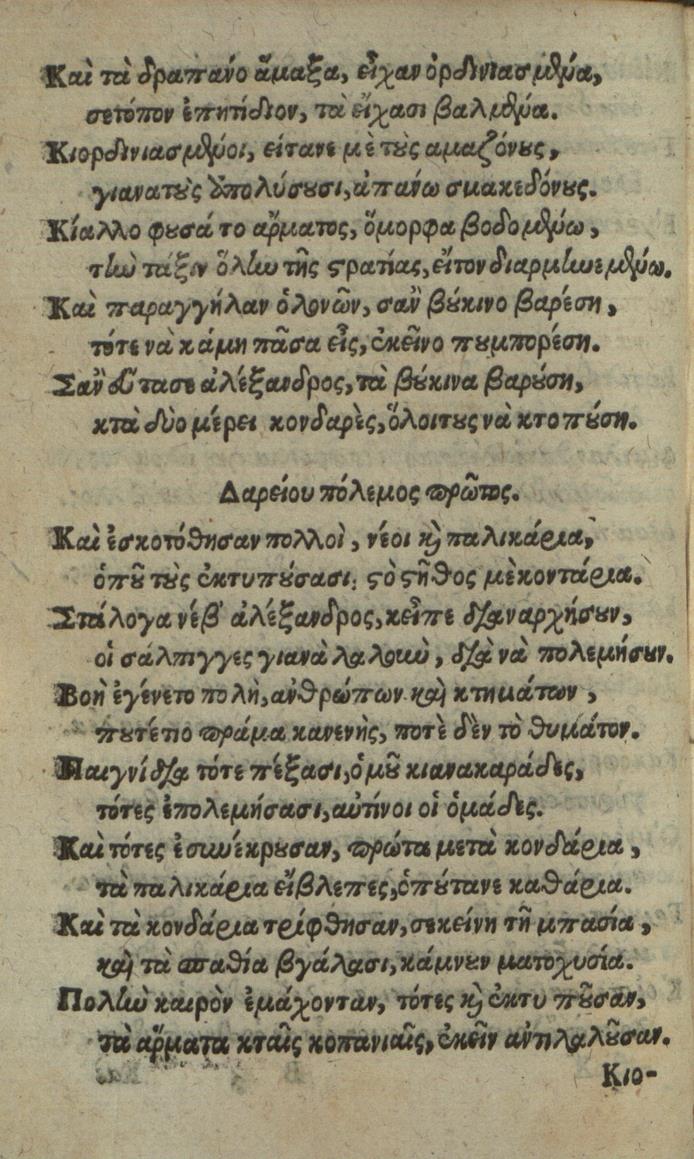 Καὶ τὰ δραπανο ἅμαξα, εἶχαν ὀρδινιασμένα,
σετόπον ἐπητίδιον, τὰ εἴχασι βαλμένα.
Κιορδινιασμένοι, είτανε μὲ τοὺς αμαζόνους,
γιανατοὺς ὑπολύσουσι, ἀπάνω σμακεδόνους.
Κίαλλο φουσάτο αῥματος, ὄμορφα βοδομένω,
τὴν τάξιν ὅλην τῆς στρατίας, εἴτον διαρμηνεμένω.
Καὶ παραγγήλαν ὁλονῶν, σαν βούκινο βαρέση,
τότε νὰ κάμη πᾶσα εἷς, ἐκεῖνο πουμπορέση.
Σαν οὕτασε ἀλέξανδρος, τὰ βούκινα βαροῦση,
κτὰ δύο μέρει κονδαρὲς, ὅλοιτους νὰ κτοπούση.
Δαρείου πόλεμος πρῶτος.
Καὶ ἐσκοτόθησαν πολλοὶ, νέοι καὶ παλικάρια,
ὁποῦ τοὺς ἐκτυπούσασι, στὸ στῆθος μὲκοντάρια.
Στάλογα νέβ' ἀλέξανδρος, κεἶπε διαναρχήσουν,
οἱ σάλπιγγες γιανὰ λαλοῦν, διὰ νὰ πολεμήσουν.
Βοὴ ἐγένετο πολὴ, ανθρώπων καὶ κτημάτων,
πουτέτιο πράμα κανενὴς, ποτὲ δὲν τὸ θυμάτον.
Παιγνίδια τότε πέξασι, ὁμοῦ κιανακαράδες,
τότες ἐπολεμήσασι, αὐτίνοι οἱ ὁμάδες.
Καὶ τότες ἐσυνέκρουσαν, πρώτα μετὰ κονδάρια,
τὰ παλικάρια εἴβλεπες, ὁπούτανε καθάρια.
Καὶ τὰ κονδάρια τρίφθησαν, σεκείνη τῆ μπασία,
καὶ τὰ σπαθία βγάλασι, κάμνουν ματοχυσία.
Πολὺν καιρὸν ἐμάχονταν, τότες καὶ ἐκτυ ποῦσαν,
τὰ αῥματα κταῖς κοπανιαῖς, ἐκεῖν αντιλαλοῦσαν.
Κιο-